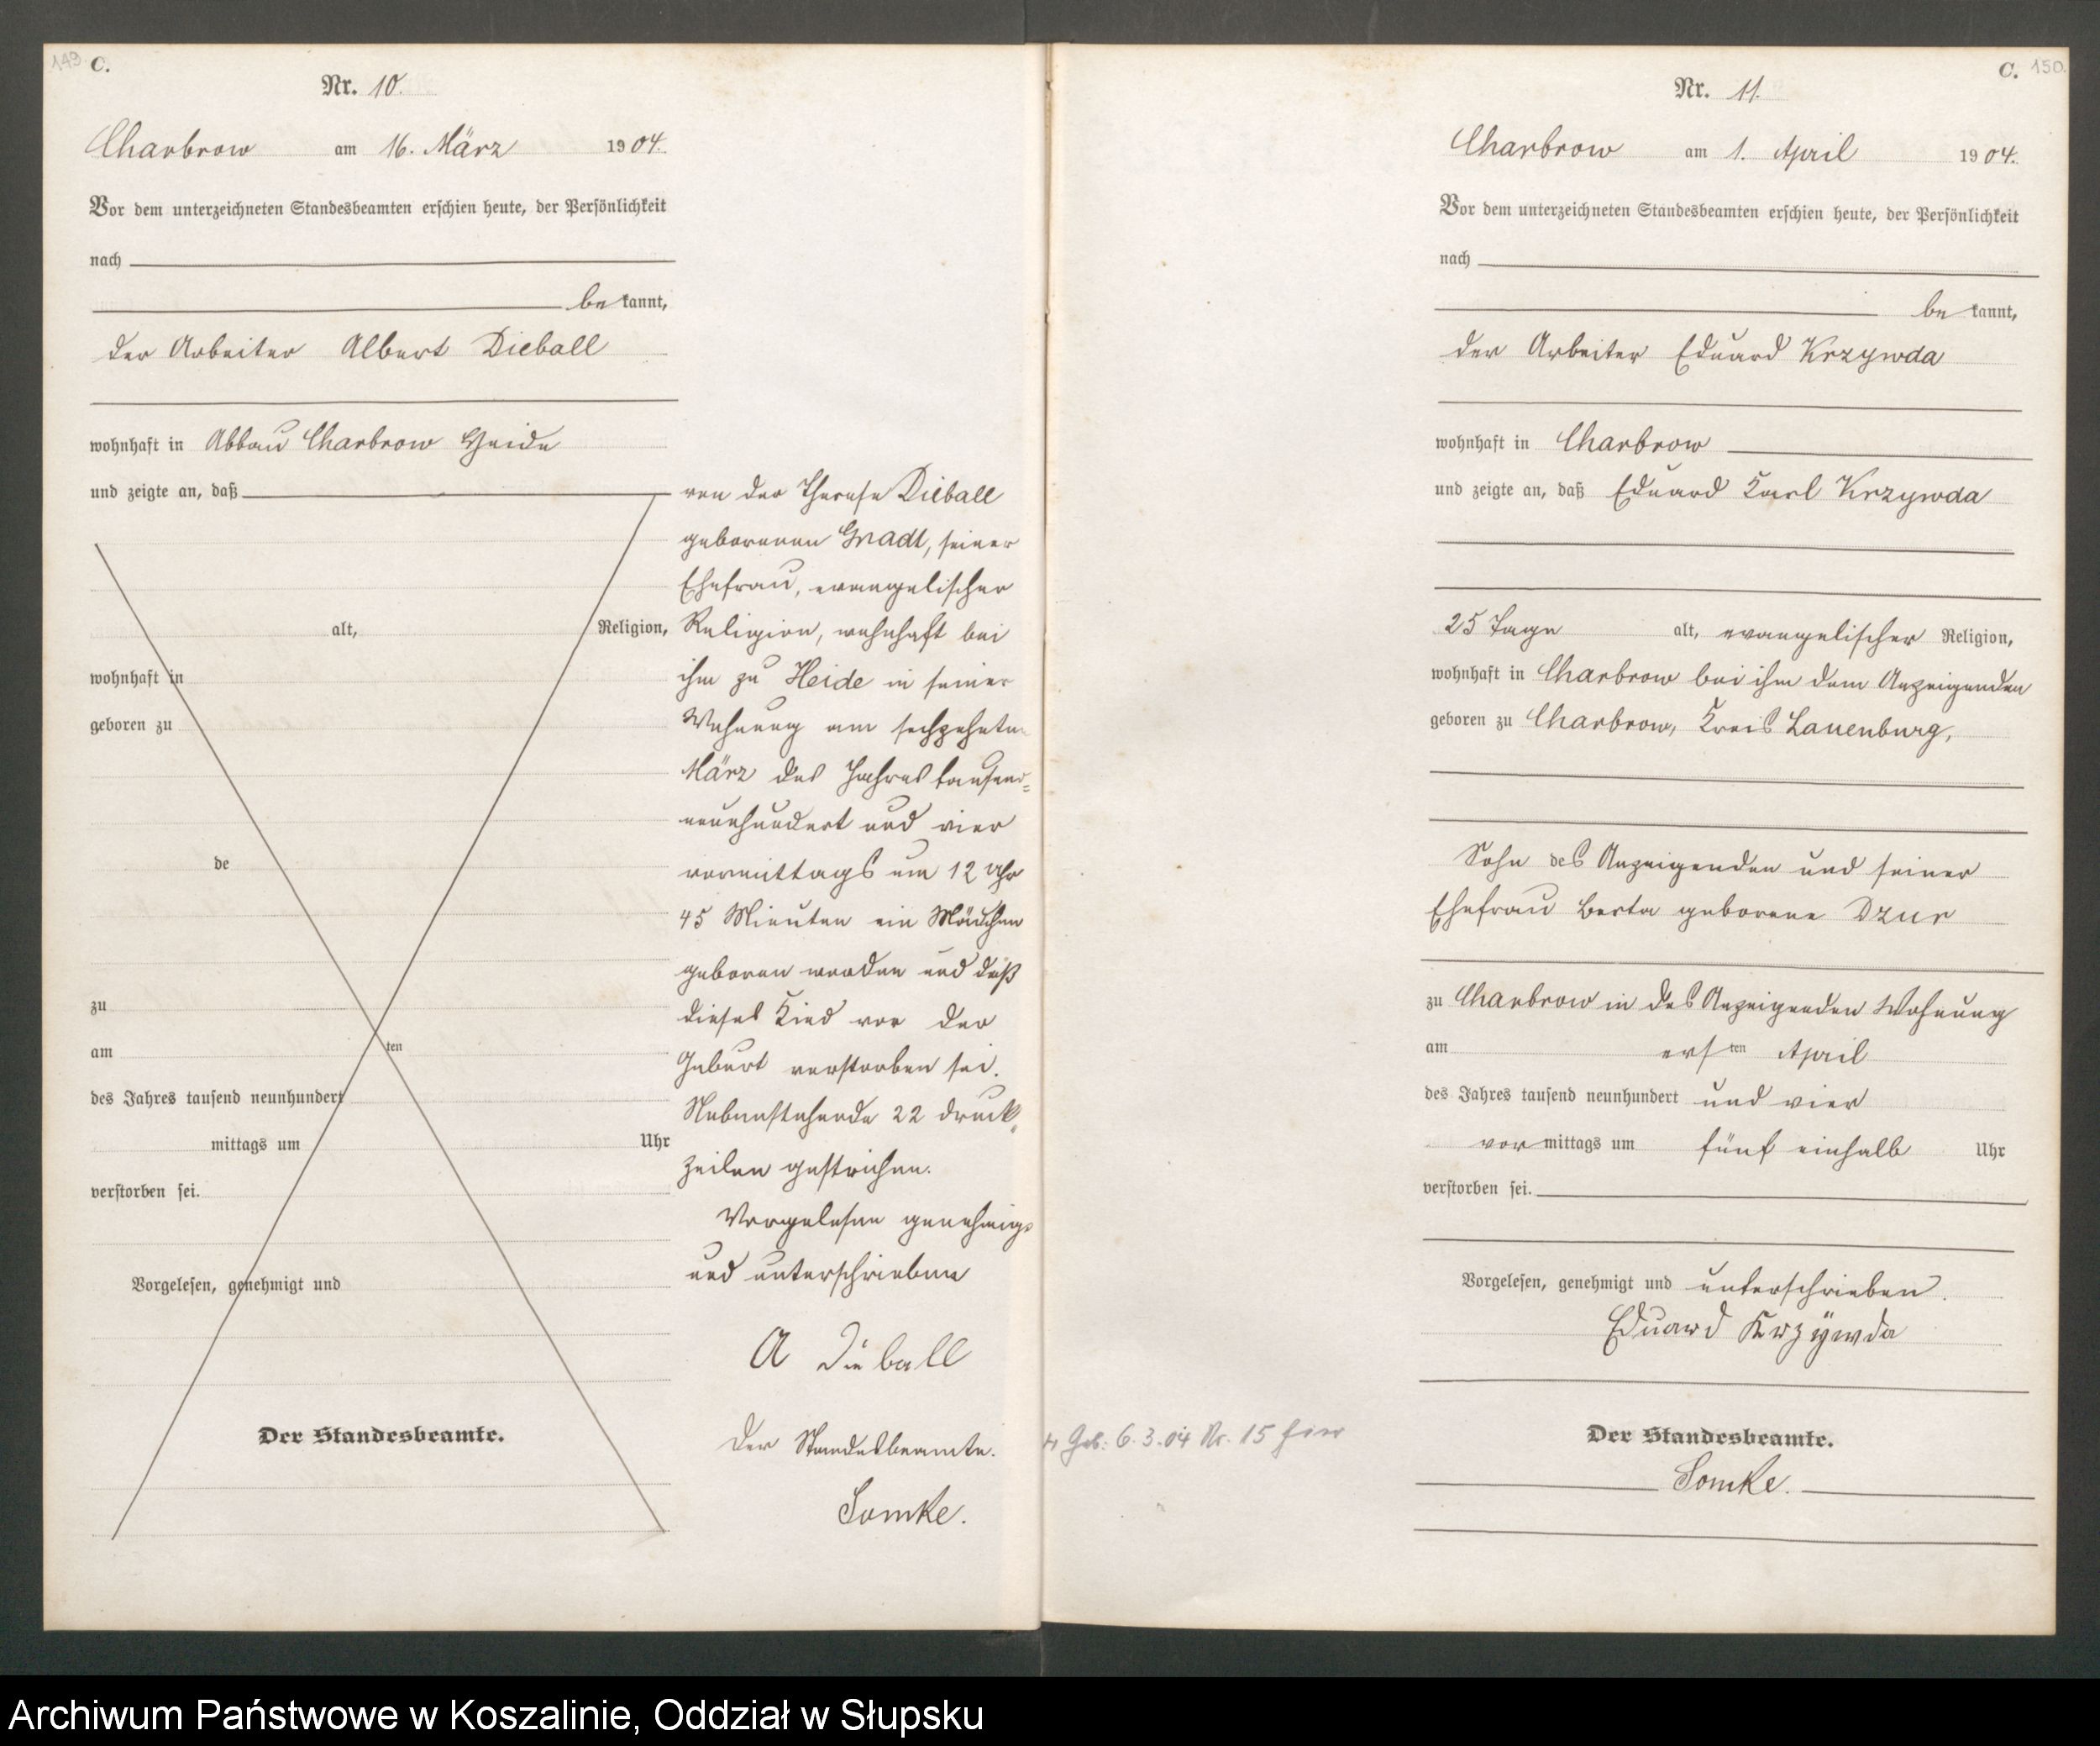 149 C.
Nr. 10.
Charbrow am 16. März 1904.
Vor dem unterzeichneten Standesbeamten erschien heute, der Persönlichkeit
nach
bekannt,
der Arbeiter Albert Dieball
wohnhaft in Abbau Charbrow Heide
und zeigte an, daß
alt, Religion,
wohnhaft in
geboren zu
de
zu
am ten
des Jahres tausend neunhundert
mittags um Uhr
verstorben sei.
Vorgelesen, genehmigt und
Der Standesbeamte.
von der Therese Dieball
geborenen Gradt, seiner
Ehefrau, evangelischer
Religion, wohnhaft bei
ihm zu Heide in seiner
Wohnung am sechzehnten
März des Jahres tausend=
neunhundert und vier
vormittags um 12 Uhr
45 Minuten ein Mädchen
geboren worden und daß
dieses Kind vor der
Geburt verstorben sei.
Nebenstehende 22 Druck-
zeilen gestrichen.
Vorgelesen genehmigt
und unterschrieben
A Dieball
Der Standesbeamte.
Somke.
C. 150.
Nr. 11.
Charbrow am 1. April 1904.
Vor dem unterzeichneten Standesbeamten erschien heute, der Persönlichkeit
nach
bekannt,
der Arbeiter Eduard Krzywda
wohnhaft in Charbrow
und zeigte an, daß Eduard Karl Krzywda
25 Tage alt, evangelischer Religion,
wohnhaft in Charbrow bei ihm dem Anzeigenden
geboren zu Charbrow, Kreis Lauenburg,
Sohn des Anzeigenden und seiner
Ehefrau Berta geborene Dzur
zu Charbrow in des Anzeigenden Wohnung
am ersten April
des Jahres tausend neunhundert und vier
vormittags um fünf einhalb Uhr
verstorben sei.
Vorgelesen, genehmigt und unterschrieben.
Eduard Krzÿwda
Der Standesbeamte.
Somke.
Geb: 6.3.04 Nr. 15 hier
Archiwum Państwowe w Koszalinie, Oddział w Słupsku